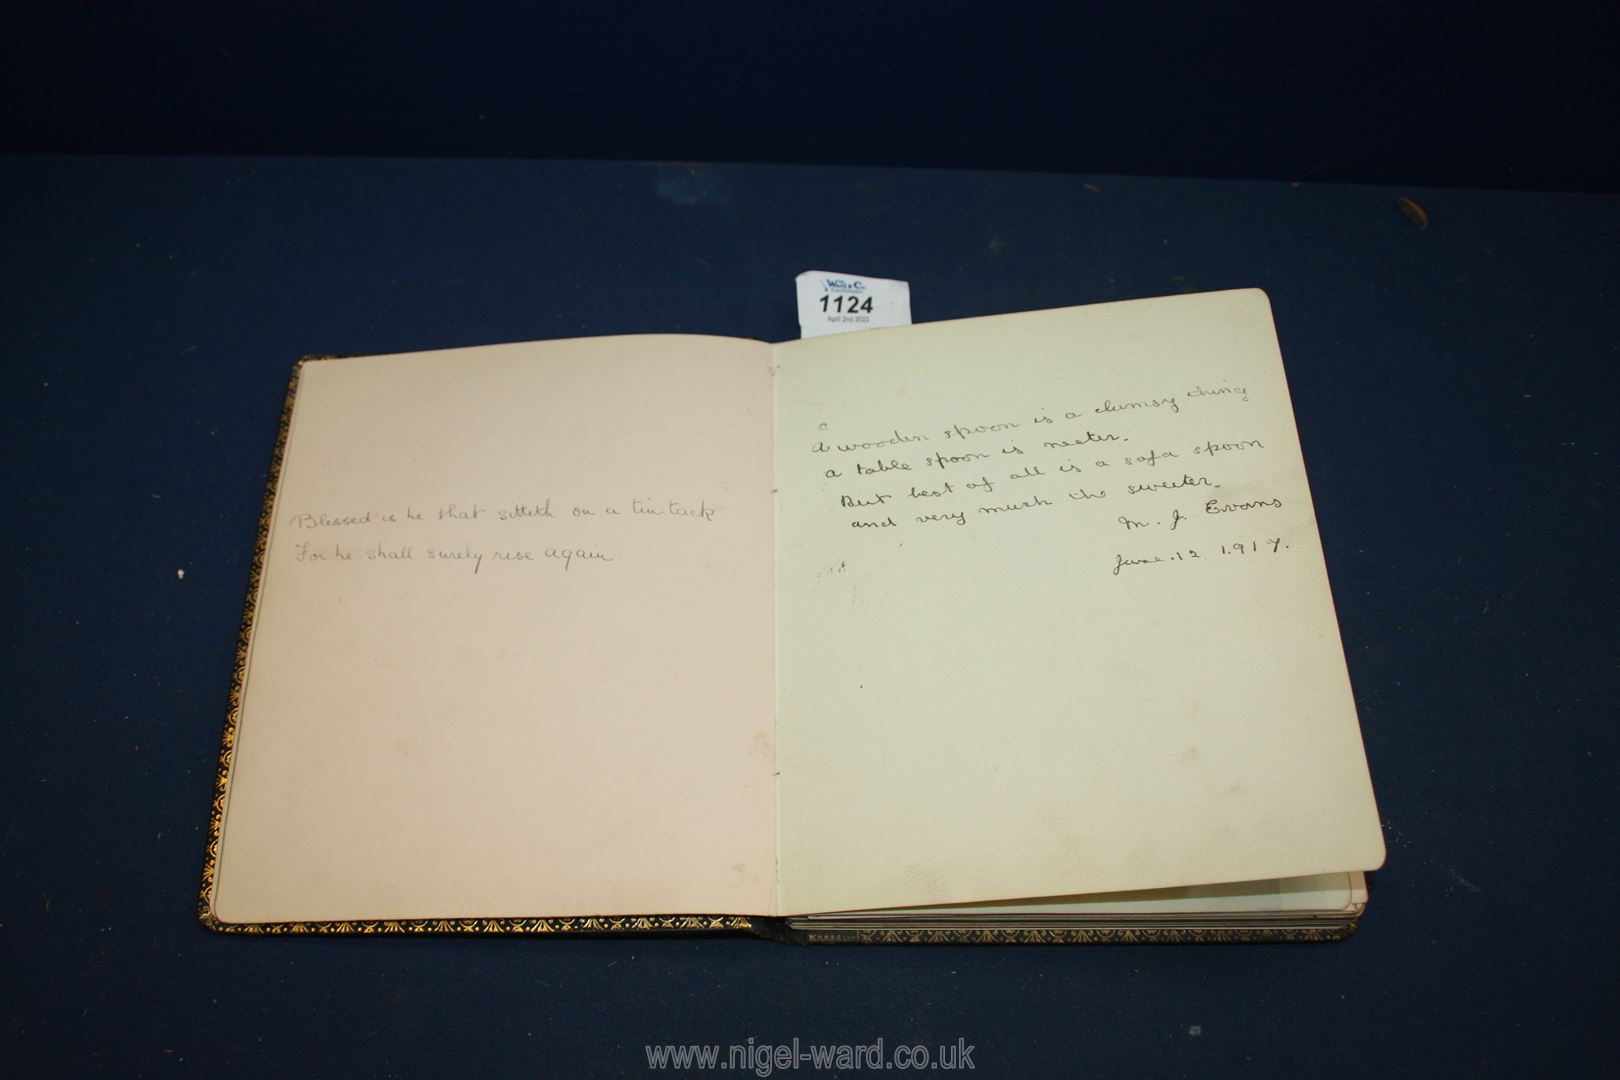 Ward & Co.
1124
April 2nd 2022
Blessed is he that sitteth on a tin tack
For he shall surely rise again.
A wooden spoon is a clumsy thing
a table spoon is neeter.
But best of all is a sofa spoon
and very much the sweeter.
M. J. Evans
June. 12. 1917.
www.nigel-ward.co.uk